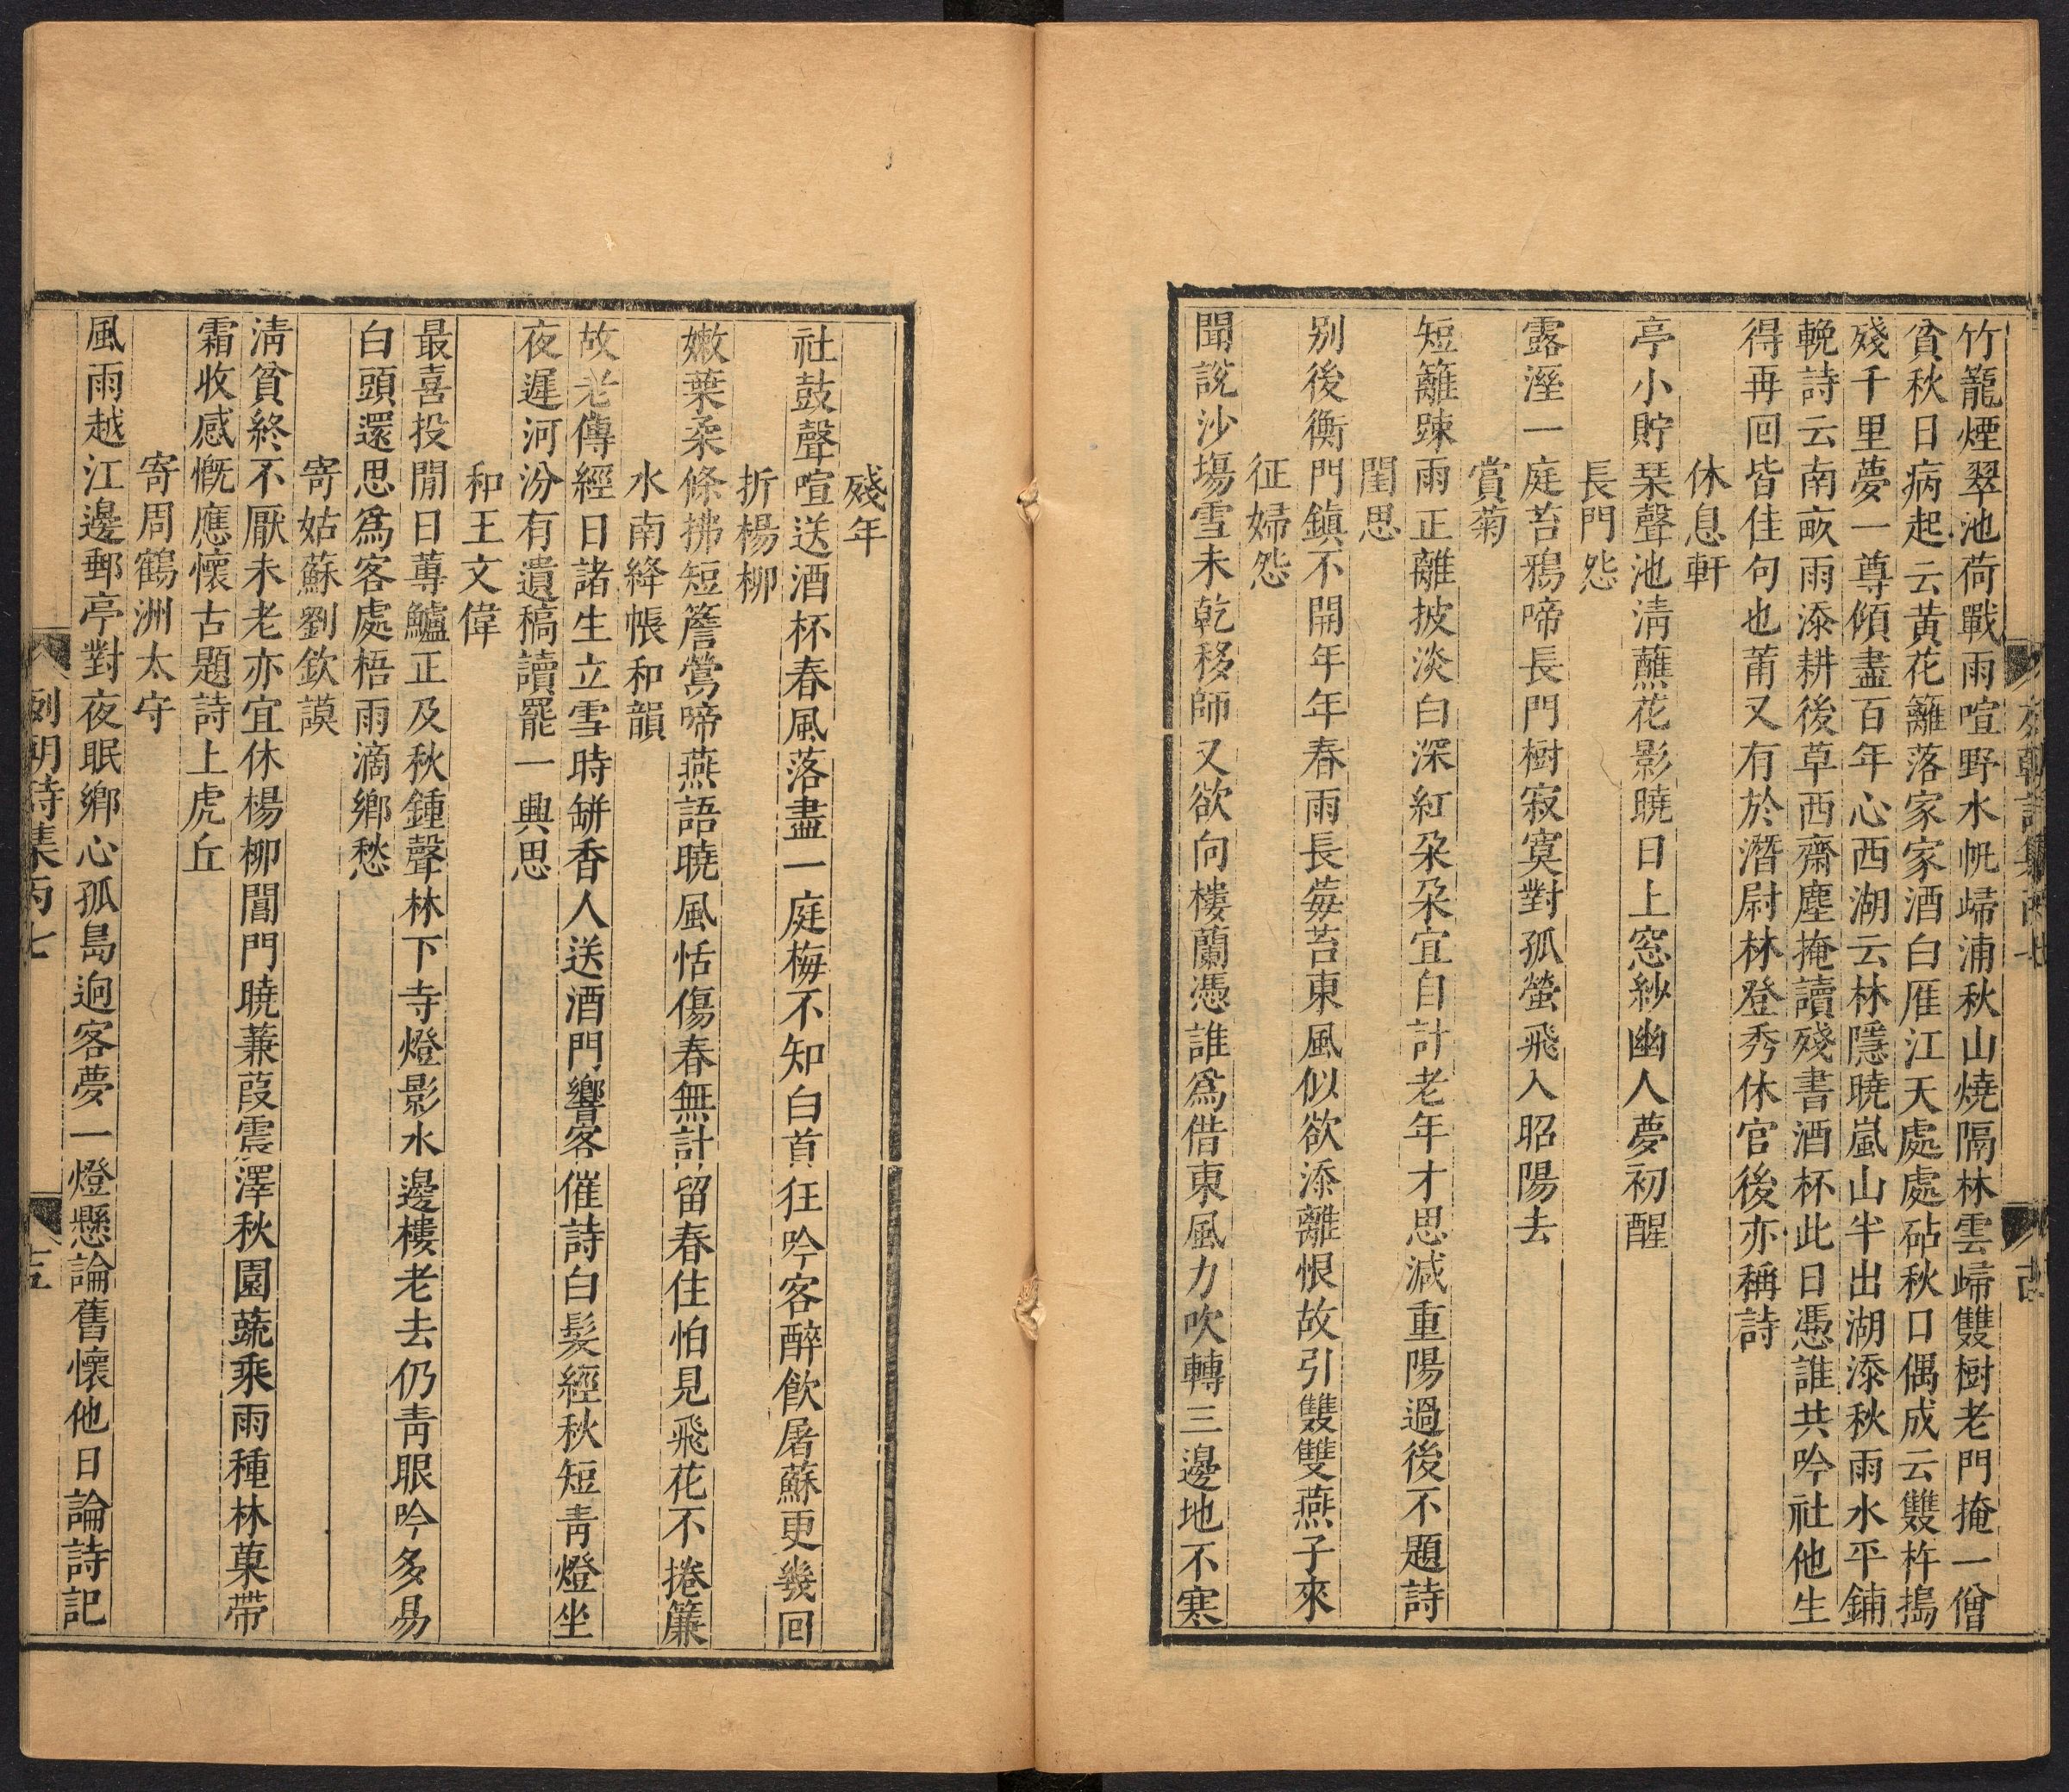 竹籠煙翠池荷戰雨喧野水帆歸浦秋山燒隔林雲歸雙樹老門掩一僧
貧秋日病起云黃花籬落家家酒白雁江天處處砧秋口偶成云雙杵搗
殘千里夢一尊傾盡百年心西湖云林隱曉嵐山半出湖添秋雨水平鋪
輓詩云南畝雨添耕後草西齋塵掩讀殘書酒杯此日憑誰共吟社他生
得再回皆佳句也莆又有於潛尉林登秀休官後亦稱詩
休息軒
亭小貯琹聲池淸蘸花影曉日上窓紗幽人夢初醒
長門怨
露溼一庭苔鴉啼長門樹寂寞對孤螢飛入昭陽去
賞菊
短籬踈雨正離披淡白深紅朶朶宜自計老年才思減重陽過後不題詩
閨思
别後衡門鎮不開年年春雨長莓苔東風似欲添離恨故引雙雙燕子來
征婦怨
聞說沙塲雪未乾移師又欲向樓蘭憑誰爲借東風力吹轉三邊地不寒
殘年
社鼓聲喧送酒杯春風落盡一庭梅不知白首狂吟客醉飮屠蘇更幾回
折楊柳
嫩葉柔條拂短簷鶯啼燕語曉風恬傷春無計留春住怕見飛花不捲簾
水南絳帳和韻
故老傳經日諸生立雪時缾香人送酒門響客催詩白髮經秋短靑燈坐
夜遲河汾有遺稿讀罷一興思
和王文偉
最喜投閒日蓴鱸正及秋鍾聲林下寺燈影水邊樓老去仍靑眼吟多易
白頭還思爲客處梧雨滴鄉愁
寄姑蘇劉欽謨
淸貧終不厭未老亦宜休楊柳閶門曉蒹葭震澤秋園蔬乘雨種林菓帶
霜收感慨應懷古題詩上虎丘
寄周鶴洲太守
風雨越江邊郵亭對夜眠鄉心孤島逈客夢一燈懸論舊懷他日論詩記
列朝詩集丙七